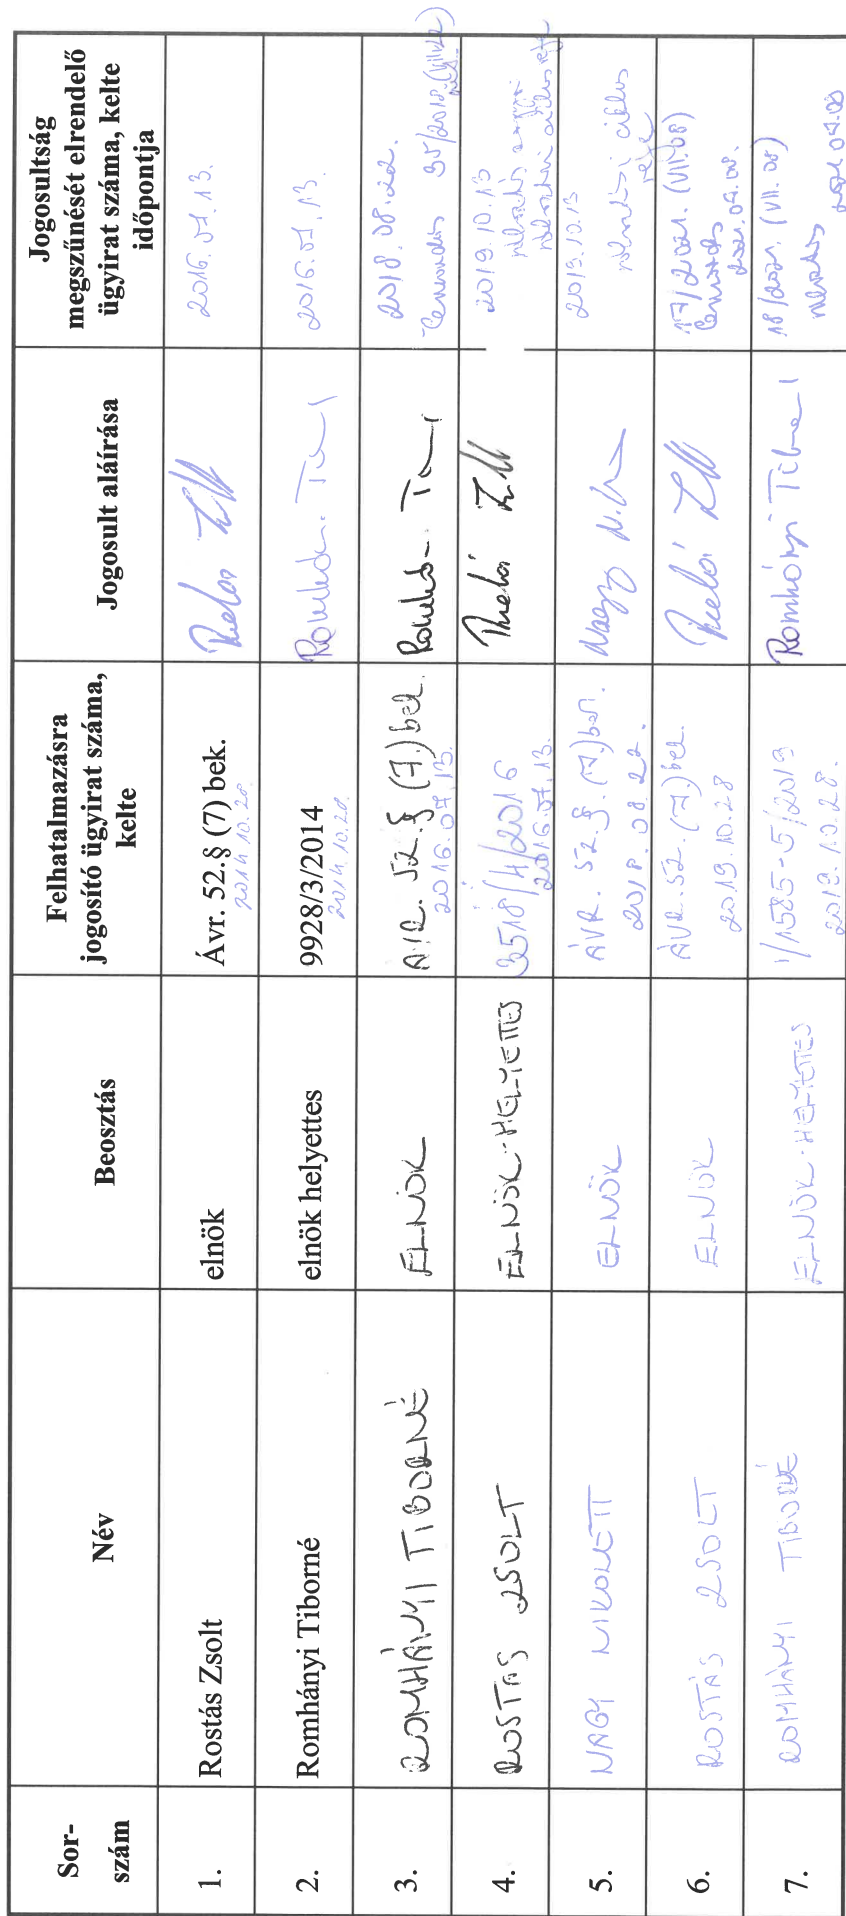 Sor-
szám
Név
Beosztás
Felhatalmazásra
jogosító ügyirat száma,
kelte
Jogosult aláírása
Jogosultság
megszűnését elrendelő
ügyirat száma, kelte
időpontja
1.
Rostás Zsolt
elnök
Ávr. 52.§ (7) bek.
2014.10.28.
2016.07.13.
2.
Romhányi Tiborné
elnök helyettes
9928/3/2014
2014.10.28.
2016.07.13.
3.
ROMHÁNYI TIBORNÉ
ELNÖK
ÁVR. 52.§ (7.) bek.
2016.07.13.
2018.08.22.
Lemondás 95/2018.
4.
ROSTÁS ZSOLT
ELNÖK-HELYETTES
3518/4/2016
2016.07.13.
2019.10.13
5.
NAGY NIKOLETT
ELNÖK
ÁVR. 52.§. (7.) bek.
2018.08.22.
Nagy
2019.10.13
ciklus
vége
6.
ROSTÁS ZSOLT
ELNÖK
ÁVR. 52. (7.) bek.
2019.10.28
17/2021. (VII.08)
Lemondás
2021.07.08.
7.
ROMHÁNYI TIBORNÉ
ELNÖK-HELYETTES
1/1585-5/2019
2019.10.28.
Romhányi Tiborné
18/2021. (VII.08)
2021.07.08